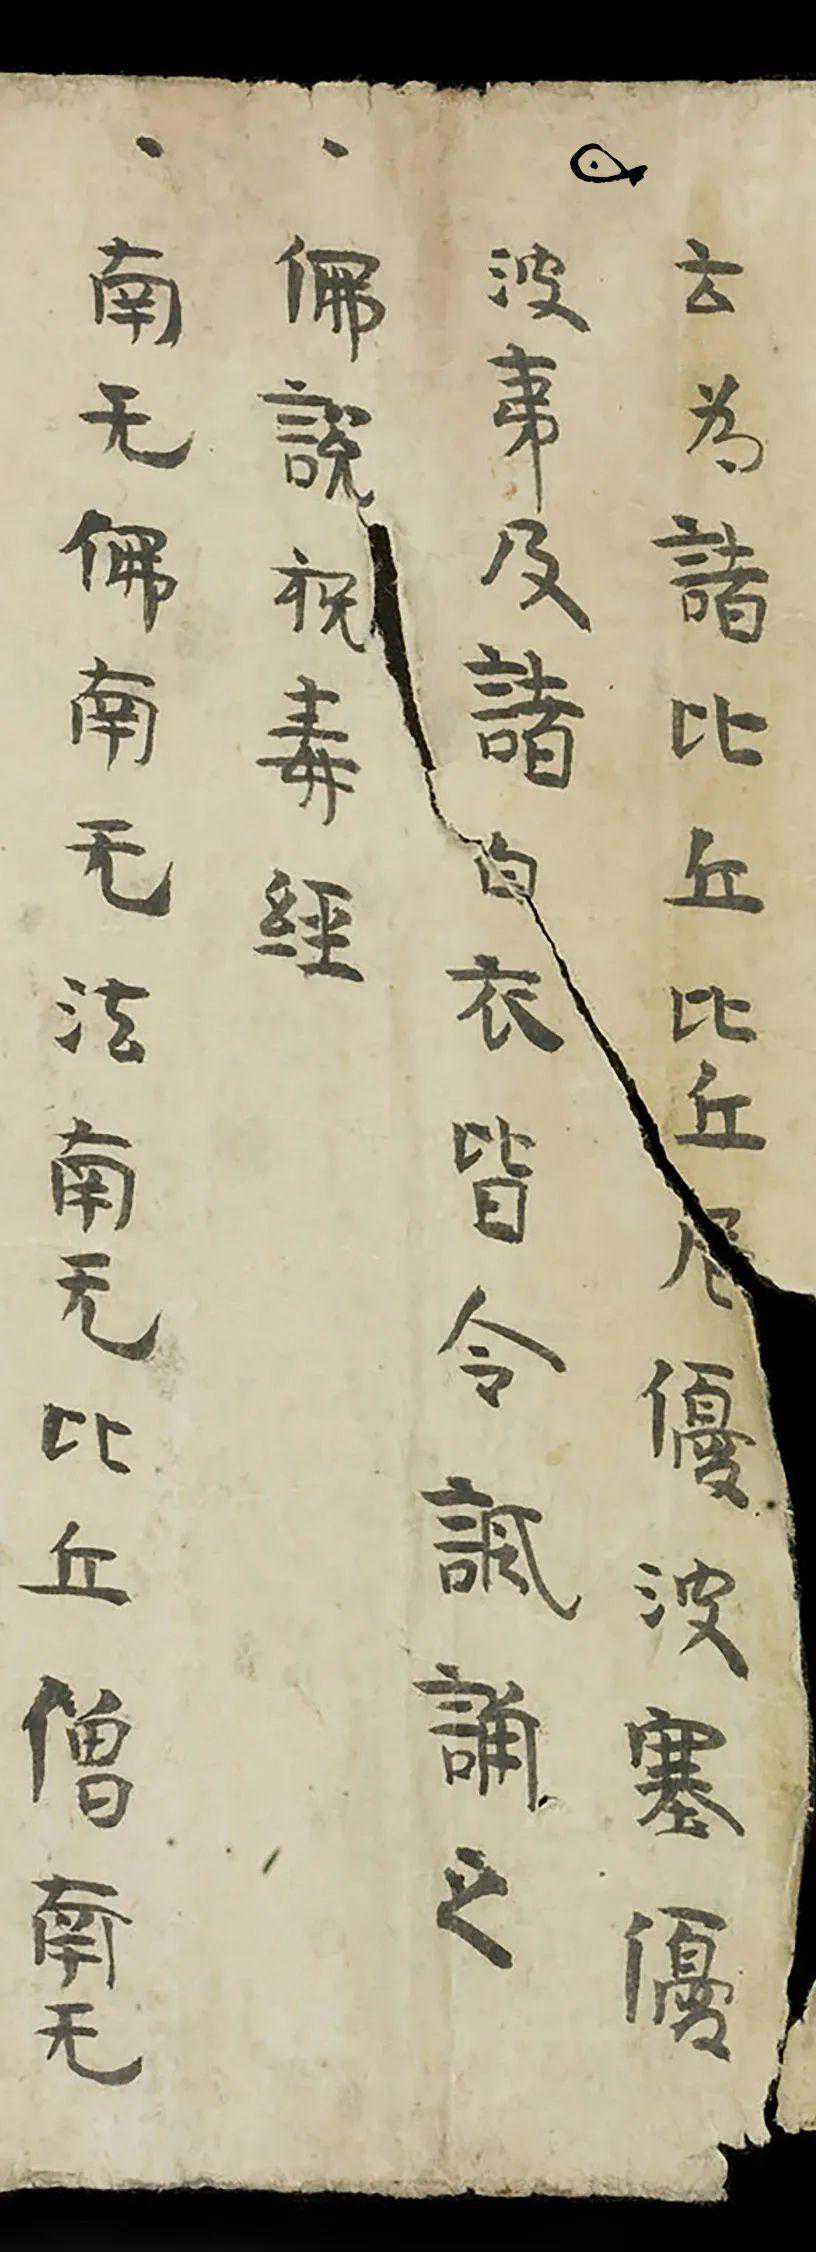 云為諸比丘比丘尼優波塞優
波苐及諸白衣皆令諷誦之
佛說呪毒經
南无佛南无法南无比丘僧南无